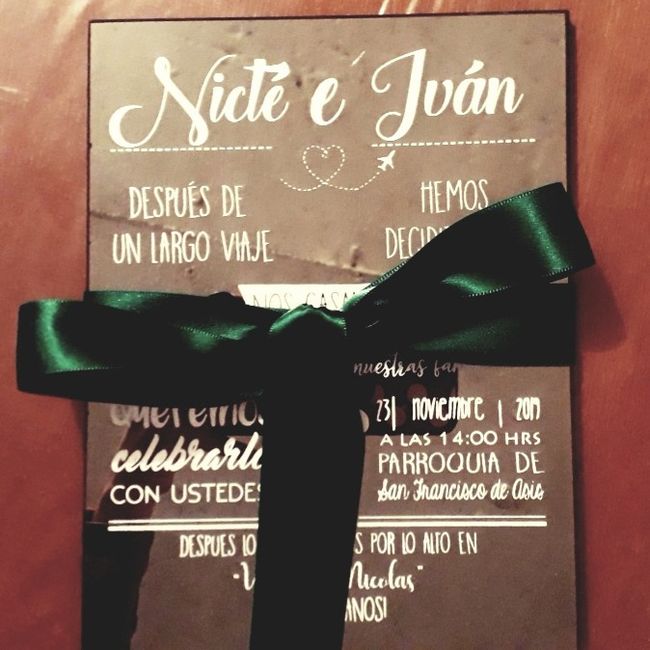 Nicté e Iván
DESPUÉS DE
UN LARGO VIAJE
HEMOS
NOS
nuestras
queremos
celebrarlo
CON USTEDES
23| noviembre | 2019
A LAS 14:00 HRS
PARROQUIA DE
San Francisco de Asis
DESPUES LO POR LO ALTO EN
Nicolas"